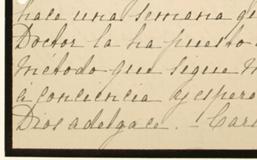 hace una semana que
Doctor la ha puesto
método que sigue
á conciencia y espero
Dios adelgace. - Car